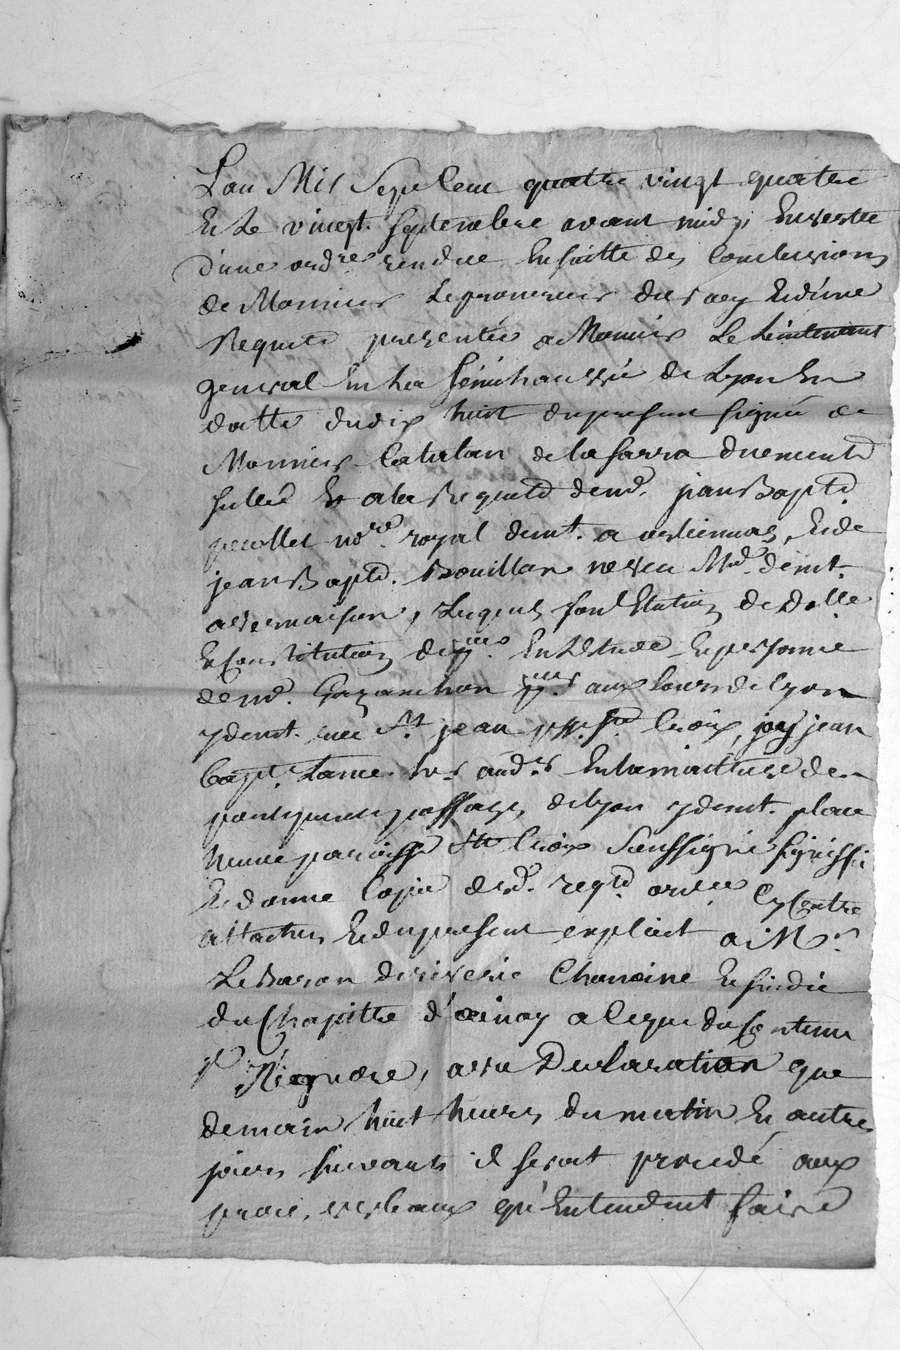 L'an Mil Sept Cent quatre vingt quatre
Et le vingt Septembre avant midy, En vertu
d'une ord.re rendue Ensuitte des Conclusions
de Monsieur Le procureur du roy Et d'une
Requete presentée a Monsieur Le Lieutenant
general En la Sénéchaussée de Lyon En
datte du dix huit du present Signée de
Monsieur Catalan de la Sarra duement
Sellée Et a la Requete de m.e jean Bapt.e
no.re royal dem.t a orliennas, Et de
jean Bapt.e Bouillon neveu M.d dem.t
a vernaison, Lequels font Election de D.lle
Et Constitution de En L'Etude Et personne
de m.e aux Cours de Lyon
y dem.t rue S.t jean p.sse S.te Croix, jay jean
Bapt. En la maitrise des
ponts ports et passages de Lyon y dem.t place
Neuve paroisse S.te Croix Soussigné Signiffié
Et donné Copie des d. req.te ord.ce Cy Contre
attachés Et du present exploit a M.r
Le Baron de riverie Chanoine Et Sindic
du Chapitre d'ainay a Ce que du Contenu
N'ignore, avec Declaration que
demain huit heures du matin Et autres
jours Suivants il Serat procedé aux
procé. verbaux qu'Entendent faire